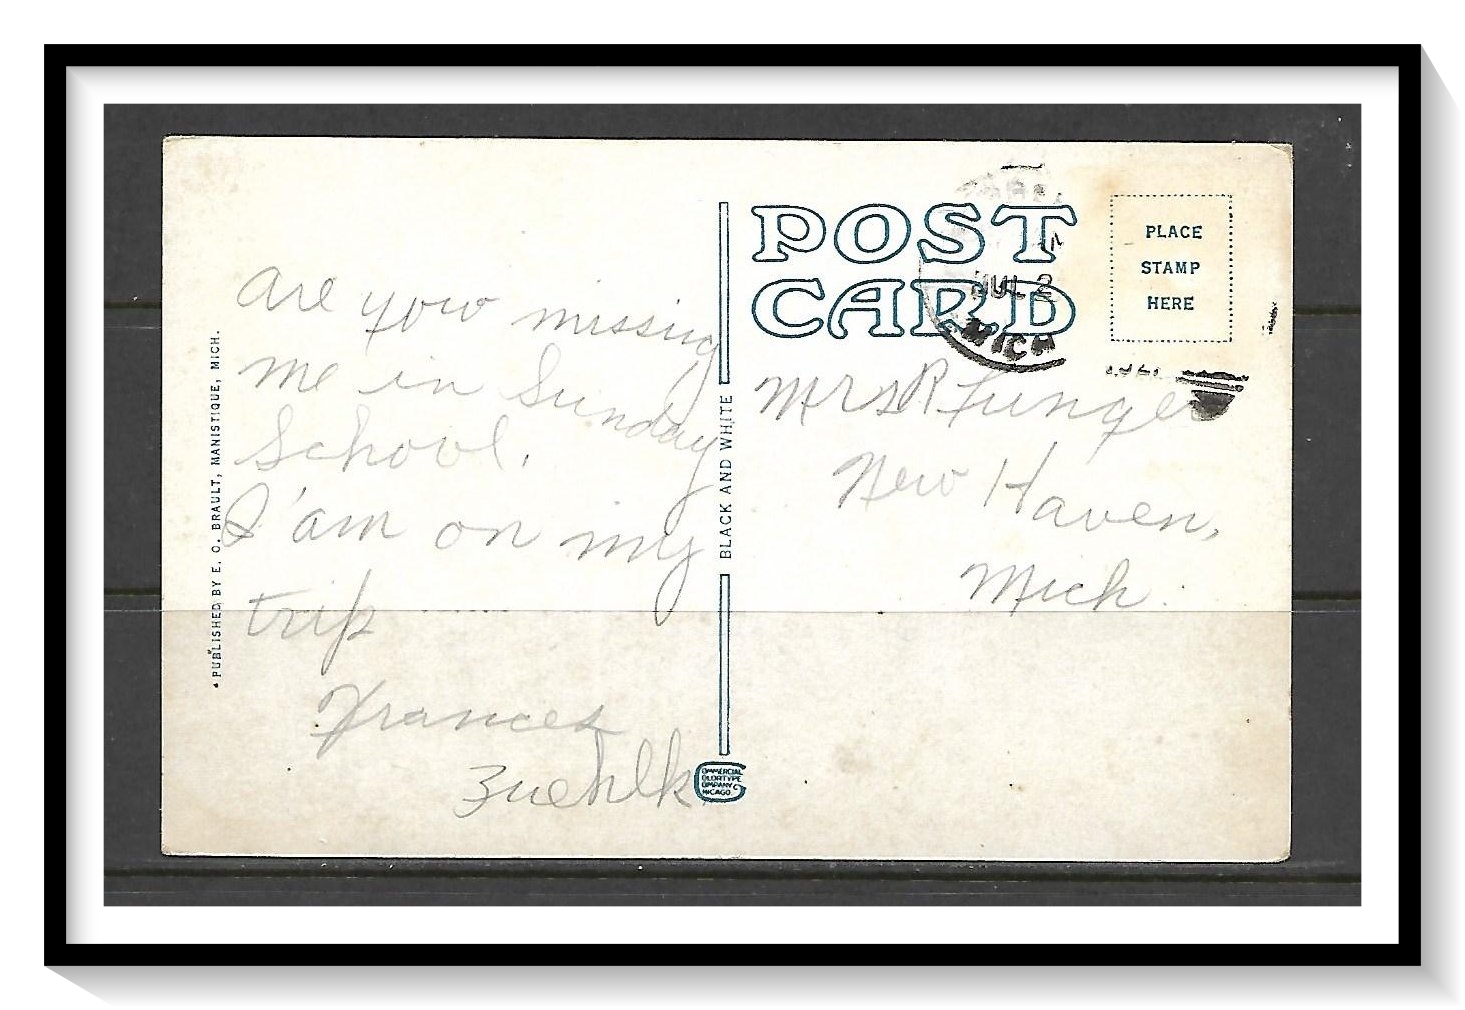 Are you missing
me in Sunday
School.
I'am on my
trip
Frances
Zuehlk
PUBLISHED BY E. C. BRAULT, MANISTIQUE, MICH.
BLACK AND WHITE
COMMERCIAL
COLORTYPE
COMPANY
CHICAGO
POST
CARD
JUL 2
MICH
PLACE
STAMP
HERE
Mrs R Funger
New Haven,
Mich.